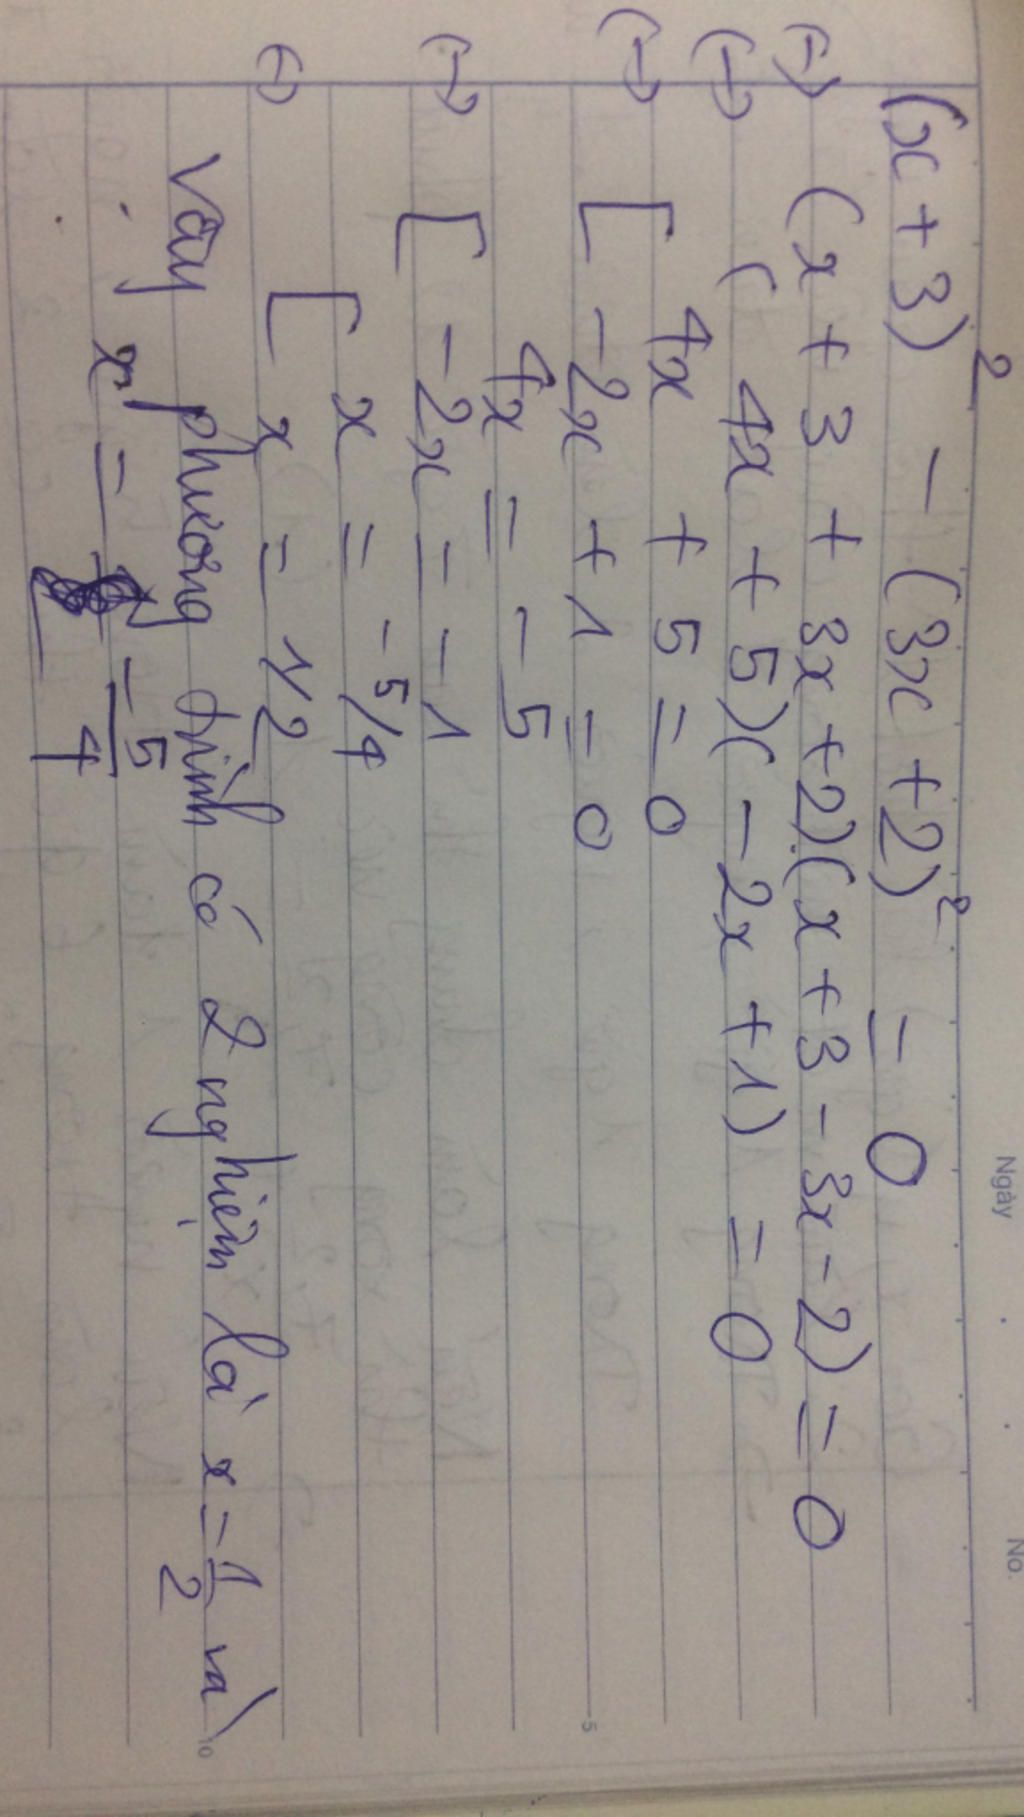 Ngày No.
(x + 3)² - (3x + 2)² = 0
(→) (x + 3 + 3x + 2)(x + 3 - 3x - 2) = 0
(→) (4x + 5)(-2x + 1) = 0
(→) [ 4x + 5 = 0
-2x + 1 = 0
5
(→) [ 4x = -5
-2x = -1
(→) [ x = -5/4
x = 1/2
Vậy phương trình có 2 nghiệm là x = 1/2 và
10
x = -5/4